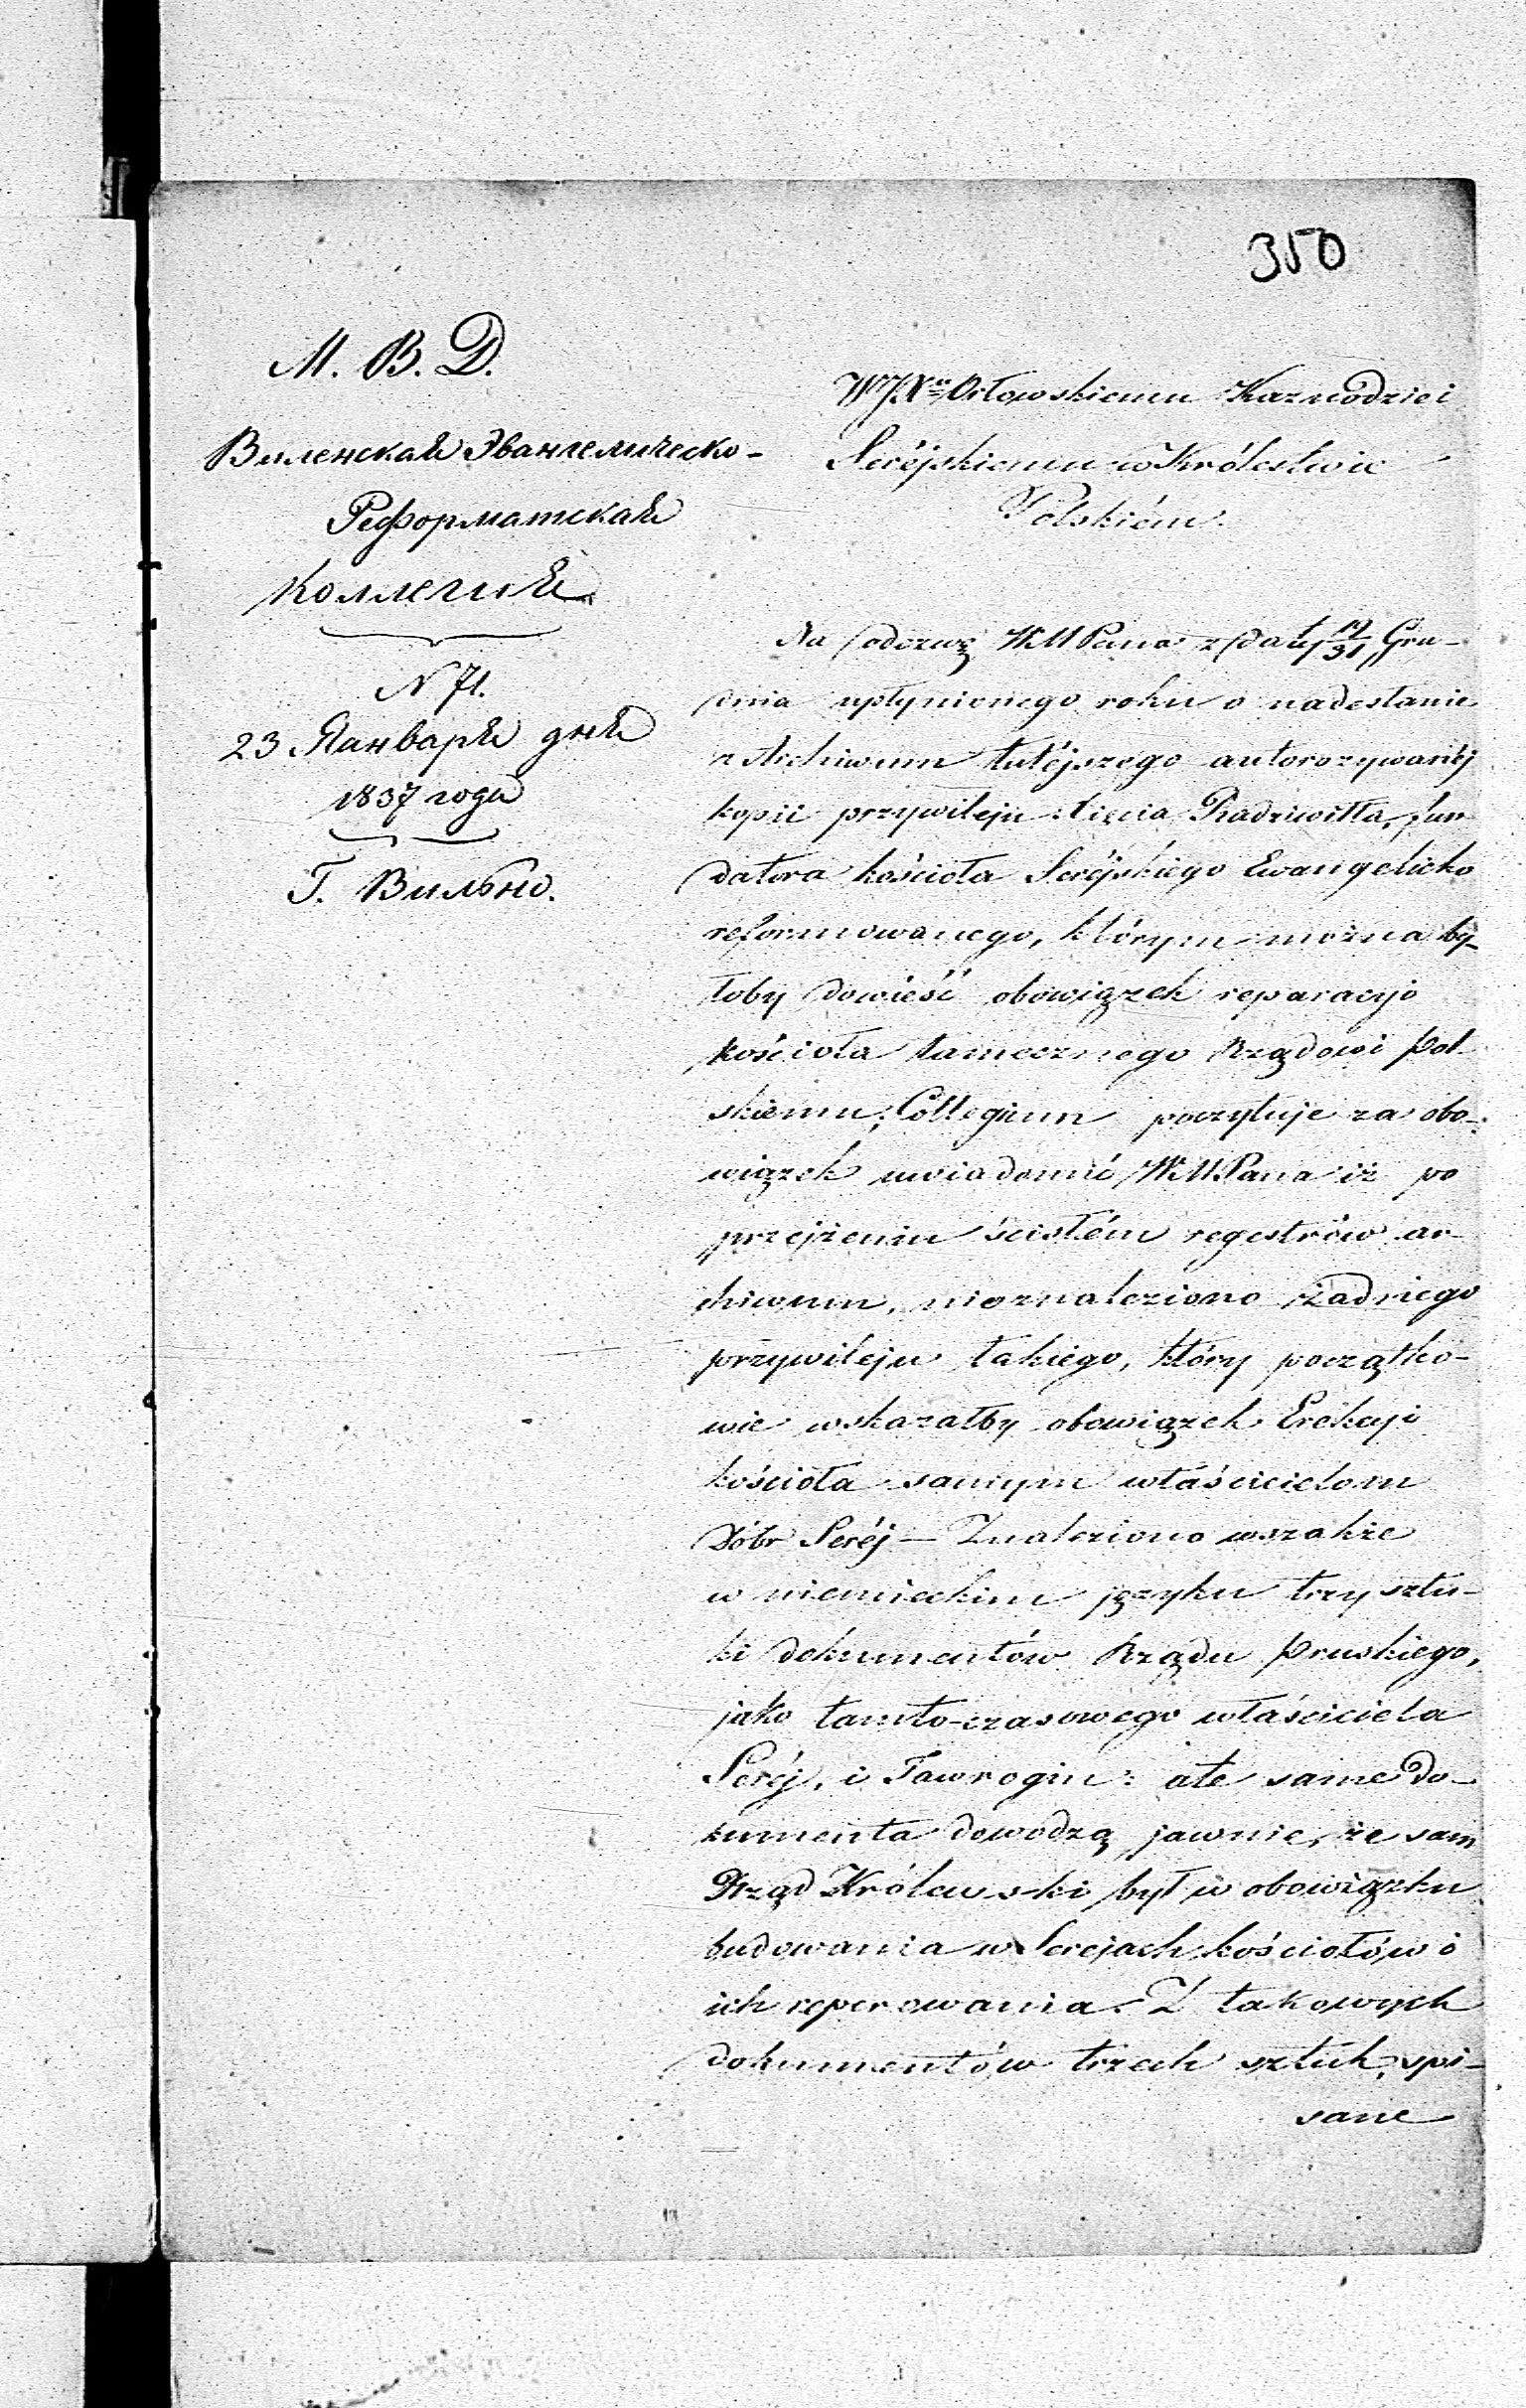 350
М. В. Д.
Виленская Эвангелическо-
Реформатская
Коллегия
N 71.
23 Января дня
1837 года
Г. Вильно.
WJX Orłowskiemu Kaznodziei
Seréjskiemu w Królestwie
Polskiém.
Na odezwę WMPana z daty 19/31 Gru-
dnia upłynionego roku o nadesłanie
z Archiwum tutéjszego autoryzowanéj
kopii przywileju Xięcia Radziwiłła, fun-
datora kościoła Seréjskiego Ewangelicko
reformowanego, którym można by-
łoby dowieść obowiązek reparacyi
kościoła tamecznego Rządowi Pol-
skiemu; Collegium poczytuje za obo-
wiązek uwiadomić WMPana iż po
przejżeniu ścisłém regestrów ar-
chiwum, nieznaleziono żadnego
przywileju takiego, który początko-
wie wskazałby obowiązek Erekcyi
kościoła samym właścicielom
Dóbr Seréj — Znaleziono wszakże
w niemieckim języku trzy sztu-
ki dokumentów Rządu Pruskiego,
jako tamto-czasowego właściciela
Seréj, i Tawrogin: ale same do-
kumenta dowodzą jawnie, że sam
Rząd Królewski był w obowiązku
budowania w Serejach kościołów i
ich reperowania. Z takowych
dokumentów trzech sztuk, spi-
sane